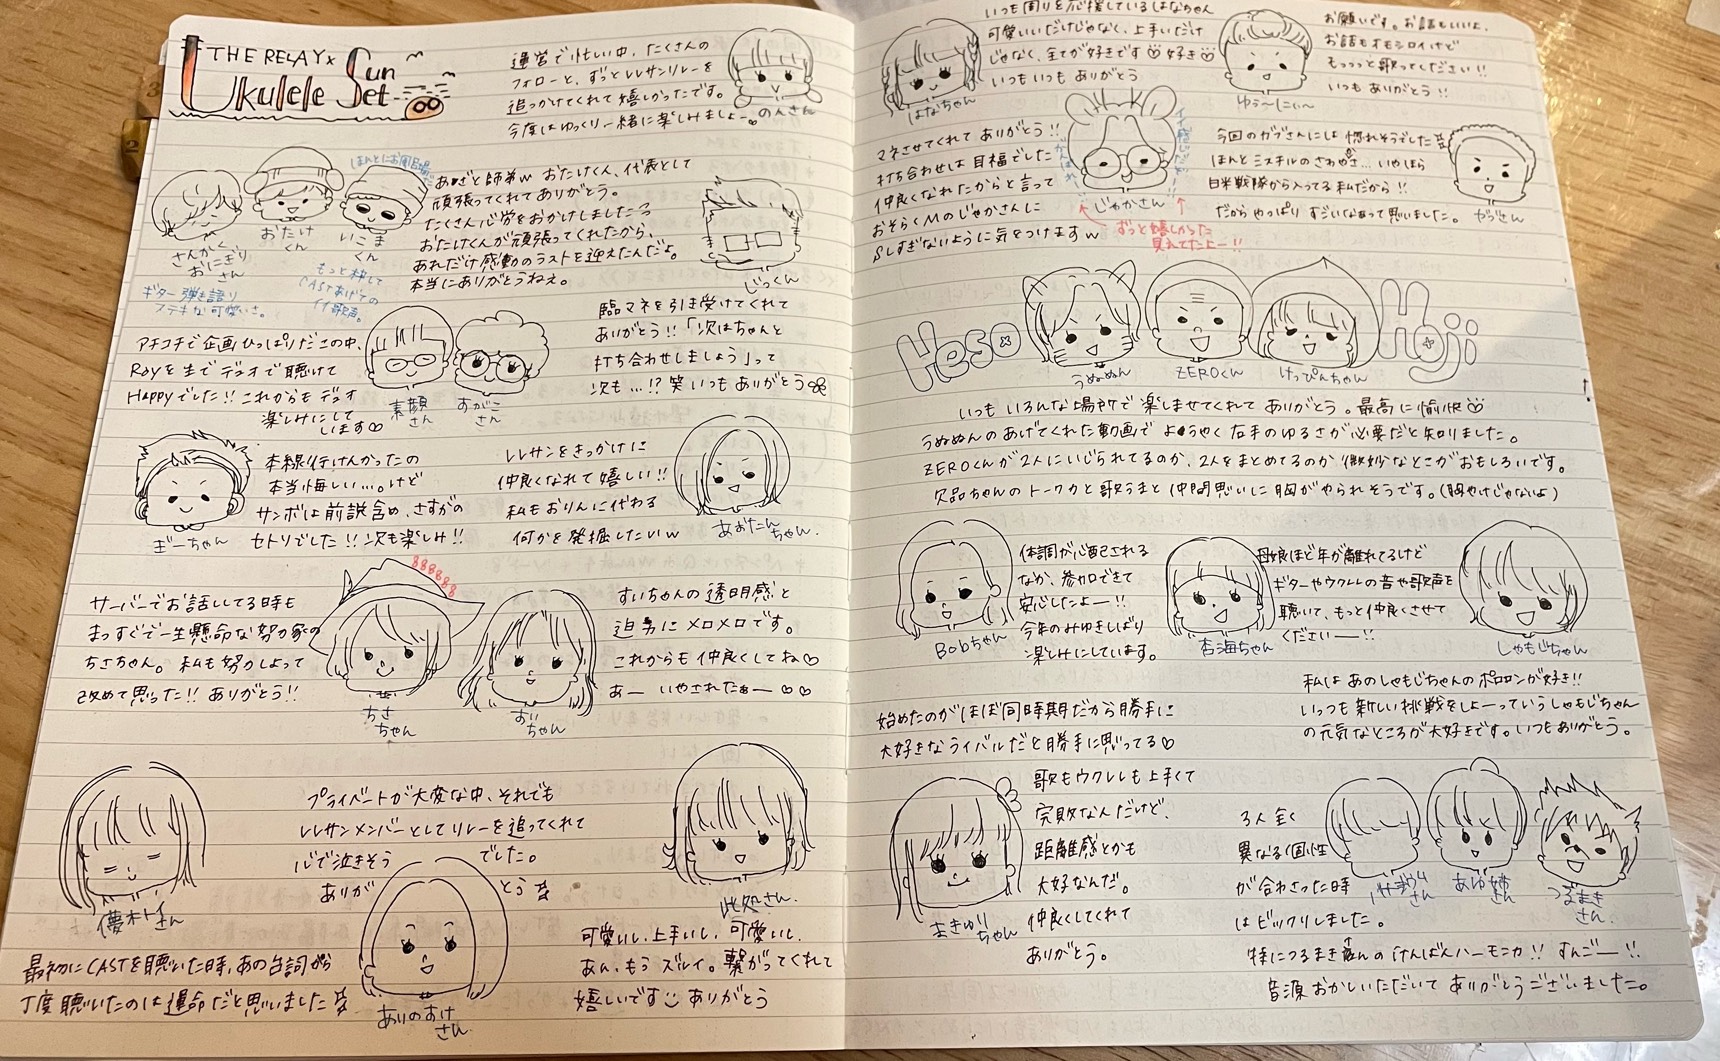 THE RELAY×
Ukulele Sun Set
運営で忙しい中、たくさんの
フォローと、ずっとレレサンリレーを
追っかけてくれて嬉しかったです。
今度はゆっくり一緒に楽しみましょー
のんさん
さんかく
おにぎり
さん
おたけ
くん
いこま
くん
ほんとにお風呂場
ギター弾き語り
ステキな可愛いさ。
もっと枠して
CASTあげての
イイ歌声。
師弟w おたけくん、代表として
頑張ってくれてありがとう。
たくさん心労をおかけしました
おたけくんが頑張ってくれたから、
あれだけ感動のラストを迎えたんだよ。
本当にありがとうねえ。
じっくん
臨マネを引き受けてくれて
ありがとう!!「次はちゃんと
打ち合わせしましょう」って
次も…!?笑 いつもありがとう
アチコチで企画ひっぱりだこの中、
Rayをまでデュオで聴けて
Happyでした!! これからもデュオ
楽しみにして
します♡
素顔
さん
すがこ
さん
ぎーちゃん
本線行けんかったの
本当悔しい…。けど
サンボは前説含め、さすがの
セトリでした!!次も楽しみ!!
レレサンをきっかけに
仲良くなれて嬉しい!!
私もおりんに代わる
何かを発掘したいw
あおたん
ちゃん.
サーバーでお話ししてる時も
まっすぐで一生懸命な努力家の
ちさちゃん。私も努力しよって
改めて思った!! ありがとう!!
888888
ちさ
ちゃん
すいちゃんの透明感と
迫力にメロメロです。
これからも仲良くしてね♡
あー いやされたぁー ♡♡
すい
ちゃん
優木トイさん
最初にCASTを聴いた時、あの台詞から
丁度聴いたのは運命だと思いました
プライベートが大変な中、それでも
レレサンメンバーとしてリレーを追ってくれて
心で泣きそうでした。
ありがとう
ありのすけ
さん
此処さん.
可愛いし、上手いし、可愛いし、
あん、もうズルイ。繋がってくれて
嬉しいです ありがとう
いつも周りを応援しているはなちゃん
可愛いいだけじゃなく、上手いだけ
じゃなく、全てが好きです 好き
いつもいつもありがとう
はなちゃん
ゆぅ〜にぃ〜
お願いです。お話もいいよ、
お話もオモシロイけど
もっっっと歌ってください!!
いつもありがとう!!
マネさせてくれてありがとう!!
打ち合わせは目福でした
仲良くなれたからと言って
おそらくMのじゃかさんに
Sしすぎないように気をつけますw
じゃかさん
ずっと嬉しかった
見れてたよー!!
今回のガブさんには惚れそうでした
ほんとミスチルのさわやさ…いやほら
日米戦隊から入ってる私だから!!
だからやっぱりすごいなぁって思いました。
がぶさん
Heso×Hoji
うぬぬん
ZEROくん
けっぴんちゃん
いつもいろんな場所で楽しませてくれてありがとう。最高に愉快
うぬぬんのあげてくれた動画でようやく右手のゆるさが必要だと知りました。
ZEROくんが2人にいじられてるのか、2人をまとめてるのか微妙なとこがおもしろいです。
欠品ちゃんのトークカと歌うまと仲間思いに胸がやられそうです。(胸やけじゃないよ)
Bobちゃん
体調が心配される
なか、参加できて
安心したよー!!
今年のみゆきしばり
楽しみにしています。
杏海ちゃん
母娘ほど年が離れてるけど
ギターやウクレレの音や歌声を
聴いて、もっと仲良くさせて
くださいー!!
しゃもじちゃん
私はあのしゃもじちゃんのポロロンが好き!!
いっつも新しい挑戦をしよーっていうしゃもじちゃん
の元気なところが大好きです。いつもありがとう。
始めたのがほぼ同時期だから勝手に
大好きなライバルだと勝手に思ってる♡
まきゆり
ちゃん
歌もウクレレも上手くて
完敗なんだけど、
距離感とかも
大好なんだ。
仲良くしてくれて
ありがとう。
3人全く
異なる個性
が合わさった時
はビックリしました。
特につるまきさんのけんばんハーモニカ!! すんごー!!
音源おかしいただいてありがとうございました。
あゆ姉
さん
つるまき
さん.